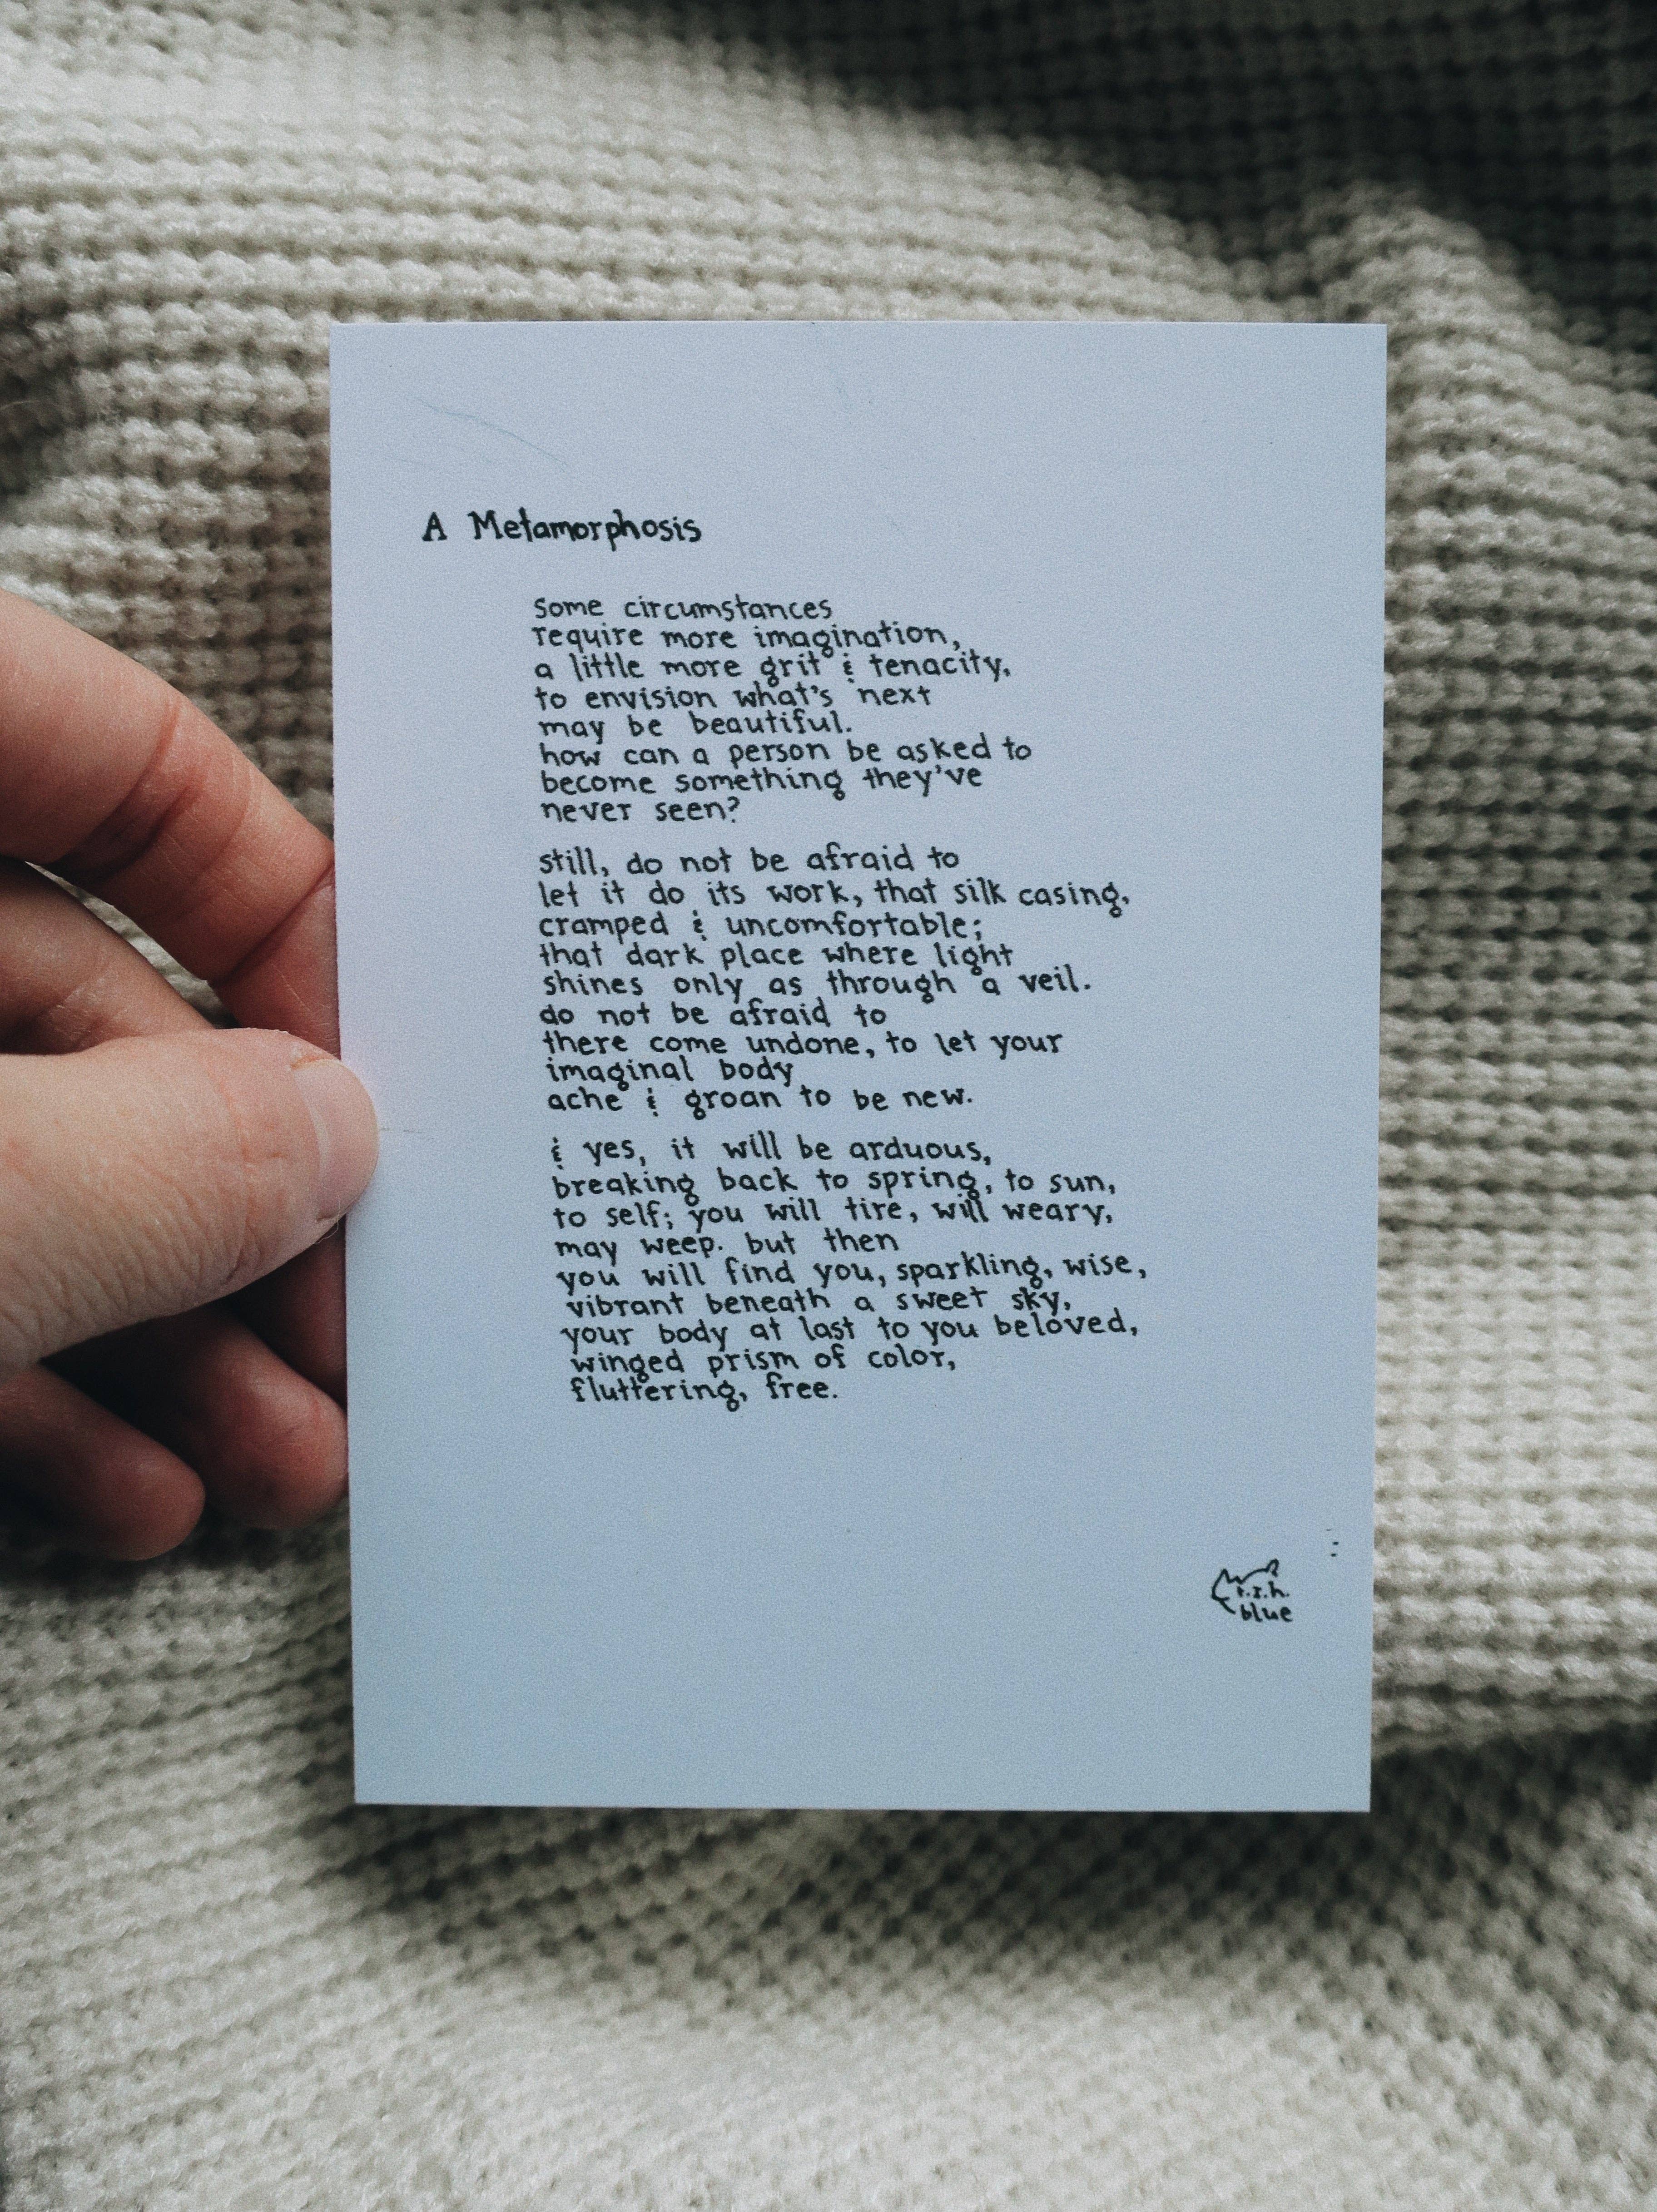 A Metamorphosis
some circumstances
require more imagination,
a little more grit & tenacity,
to envision what's next
may be beautiful.
how can a person be asked to
become something they've
never seen?
still, do not be afraid to
let it do its work, that silk casing,
cramped & uncomfortable;
that dark place where light
shines only as through a veil.
do not be afraid to
there come undone, to let your
imaginal body
ache & groan to be new.
& yes, it will be arduous,
breaking back to spring, to sun,
to self; you will tire, will weary,
may weep. but then
you will find you, sparkling, wise,
vibrant beneath a sweet sky,
your body at last to you beloved,
winged prism of color,
fluttering, free.
blue